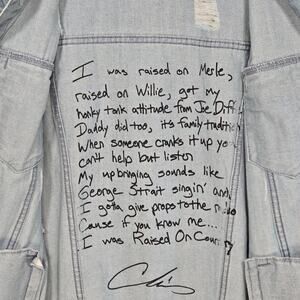 I was raised on Merle,
raised on Willie, got my
honky tonk attitude from Joe Diff
Daddy did too, it's family traditi
When someone cranks it up yo
can't help but listen
My upbringing sounds like
George Strait singin' and
I gotta give props to the radio
Cause if you know me...
I was Raised On Country